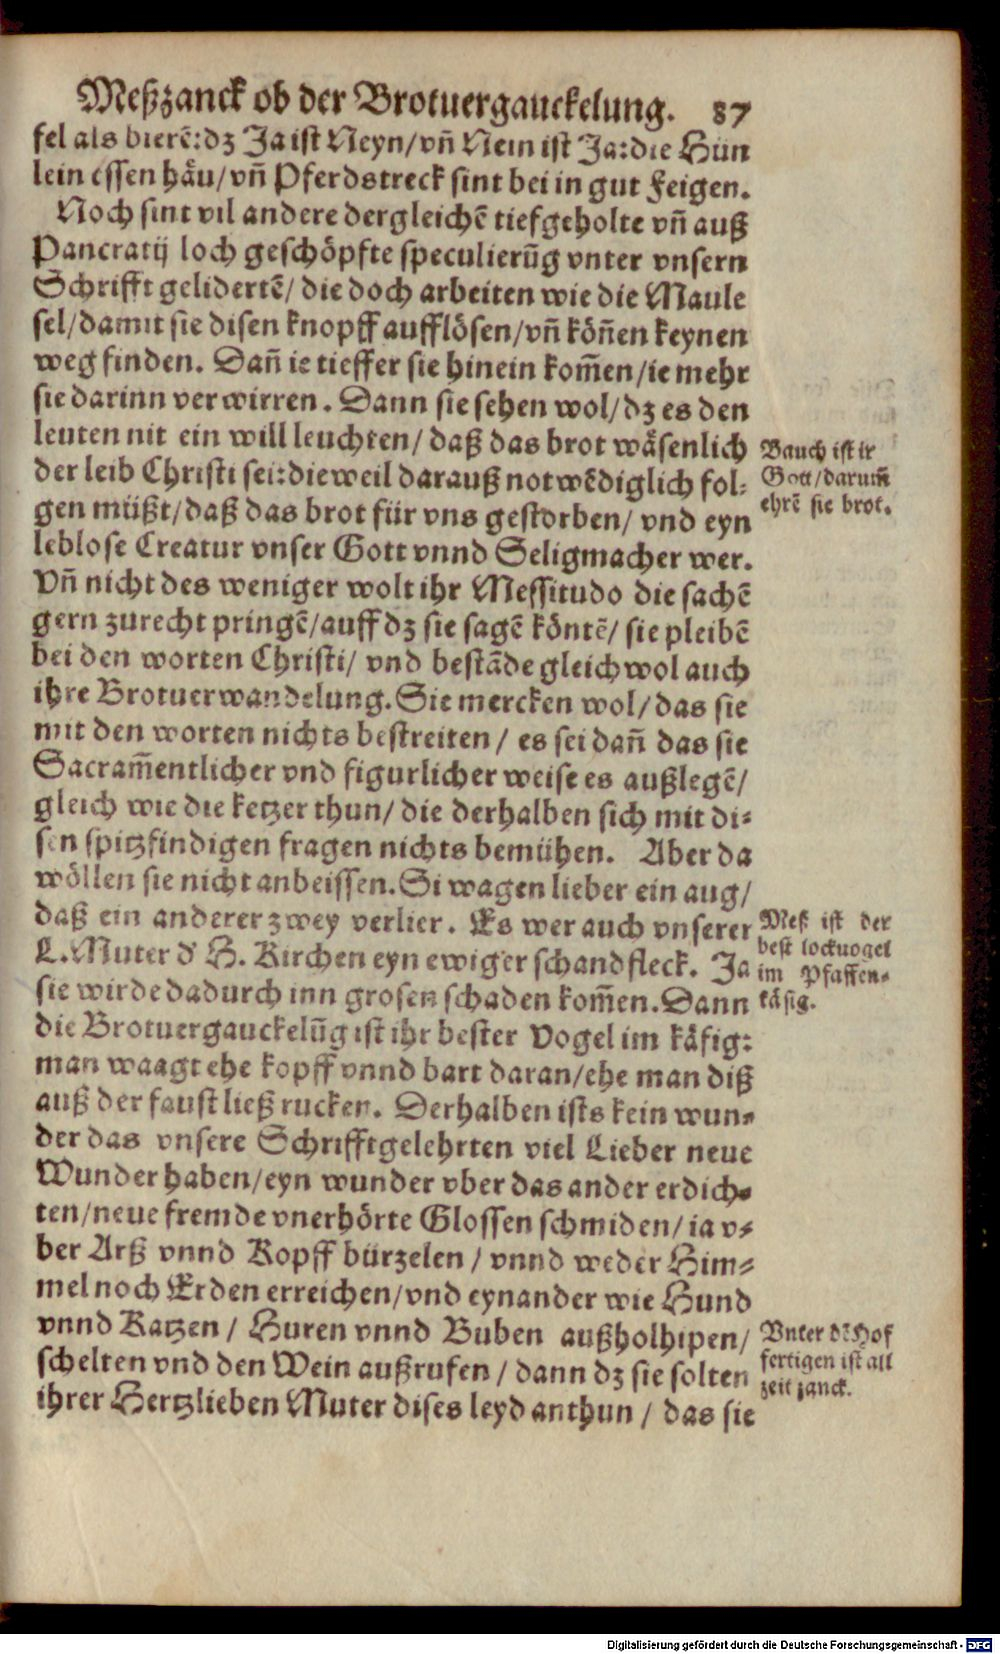 Meßzanck ob der Brotuergauckelung. 87
fel als bierē: dz Ja ist Neyn/ vn̄ Nein ist Ja: die Hün
lein essen häu/ vn̄ Pferdstreck sint bei in gut Feigen.
Noch sint vil andere dergleichē tiefgeholte vn̄ auß
Pancratij loch geschöpfte speculierūg vnter vnsern
Schrifft gelidertē/ die doch arbeiten wie die Maule
sel/ damit sie disen knopff aufflösen/ vn̄ kön̄en keynen
weg finden. Dan̄ ie tieffer sie hinein kom̄en/ ie mehr
sie darinn verwirren. Dann sie sehen wol/ dz es den
leuten nit ein will leuchten/ daß das brot wäsenlich
der leib Christi sei: dieweil darauß notwēdiglich fol-
gen müßt/ daß das brot für vns gestorben/ vnd eyn
leblose Creatur vnser Gott vnnd Seligmacher wer.
Vn̄ nicht des weniger wolt ihr Messitudo die sachē
gern zurecht pringē/ auff dz sie sagē köntē/ sie pleibē
bei den worten Christi/ vnd bestāde gleichwol auch
ihre Brotuerwandelung. Sie mercken wol/ das sie
mit den worten nichts bestreiten/ es sei dan̄ das sie
Sacram̄entlicher vnd figurlicher weise es außlegē/
gleich wie die ketzer thun/ die derhalben sich mit di-
sen spitzfindigen fragen nichts bemühen. Aber da
wöllen sie nicht anbeissen. Si wagen lieber ein aug/
daß ein anderer zwey verlier. Es wer auch vnserer
L. Muter d' H. Kirchen eyn ewiger schandfleck. Ja
sie wirde dadurch inn grosen schaden kom̄en. Dann
die Brotuergauckelūg ist ihr bester Vogel im käfig:
man waagt ehe kopff vnnd bart daran/ ehe man diß
auß der faust ließ rucken. Derhalben ists kein wun-
der das vnsere Schrifftgelehrten viel Lieber neue
Wunder haben/ eyn wunder vber das ander erdich-
ten/ neue fremde vnerhörte Glossen schmiden/ ia v-
ber Arß vnnd Kopff bürzelen/ vnnd weder Him-
mel noch Erden erreichen/ vnd eynander wie Hund
vnnd Katzen/ Huren vnnd Buben außholhipen/
schelten vnd den Wein außrufen/ dann dz sie solten
ihrer Hertzlieben Muter dises leyd anthun/ das sie
Bauch ist ir
Gott/ darum̄
ehrē sie brot.
Meß ist der
best lockuogel
im Pfaffen-
käfig.
Vnter d' Hof
fertigen ist all
zeit zanck.
Digitalisierung gefördert durch die Deutsche Forschungsgemeinschaft - DFG